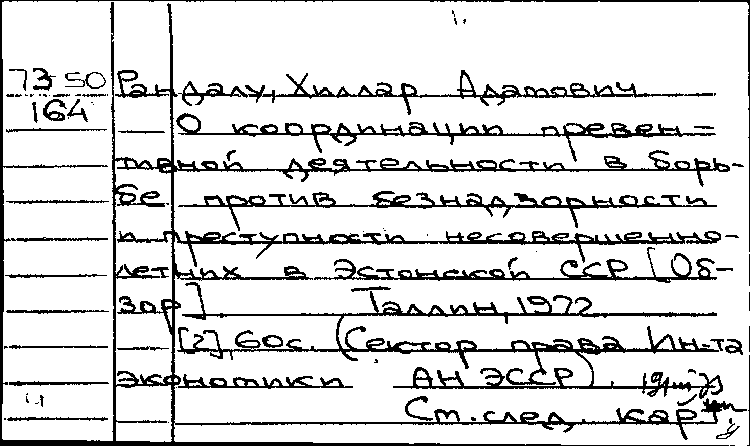 1.
73-50
164
Рандалу, Хиллар Адамович
О координации превен=
тивной деятельности в борь-
бе против безнадзорности
и преступности несовершенно-
летних в Эстонской ССР [Об-
зор]. Таллин, 1972
[2], 60с. (Сектор права Ин-та
экономики АН ЭССР).
См. след. карт.